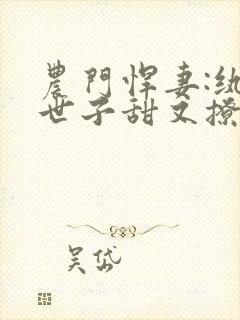 農門悍妻:纨
世子甜又撩
吴岱